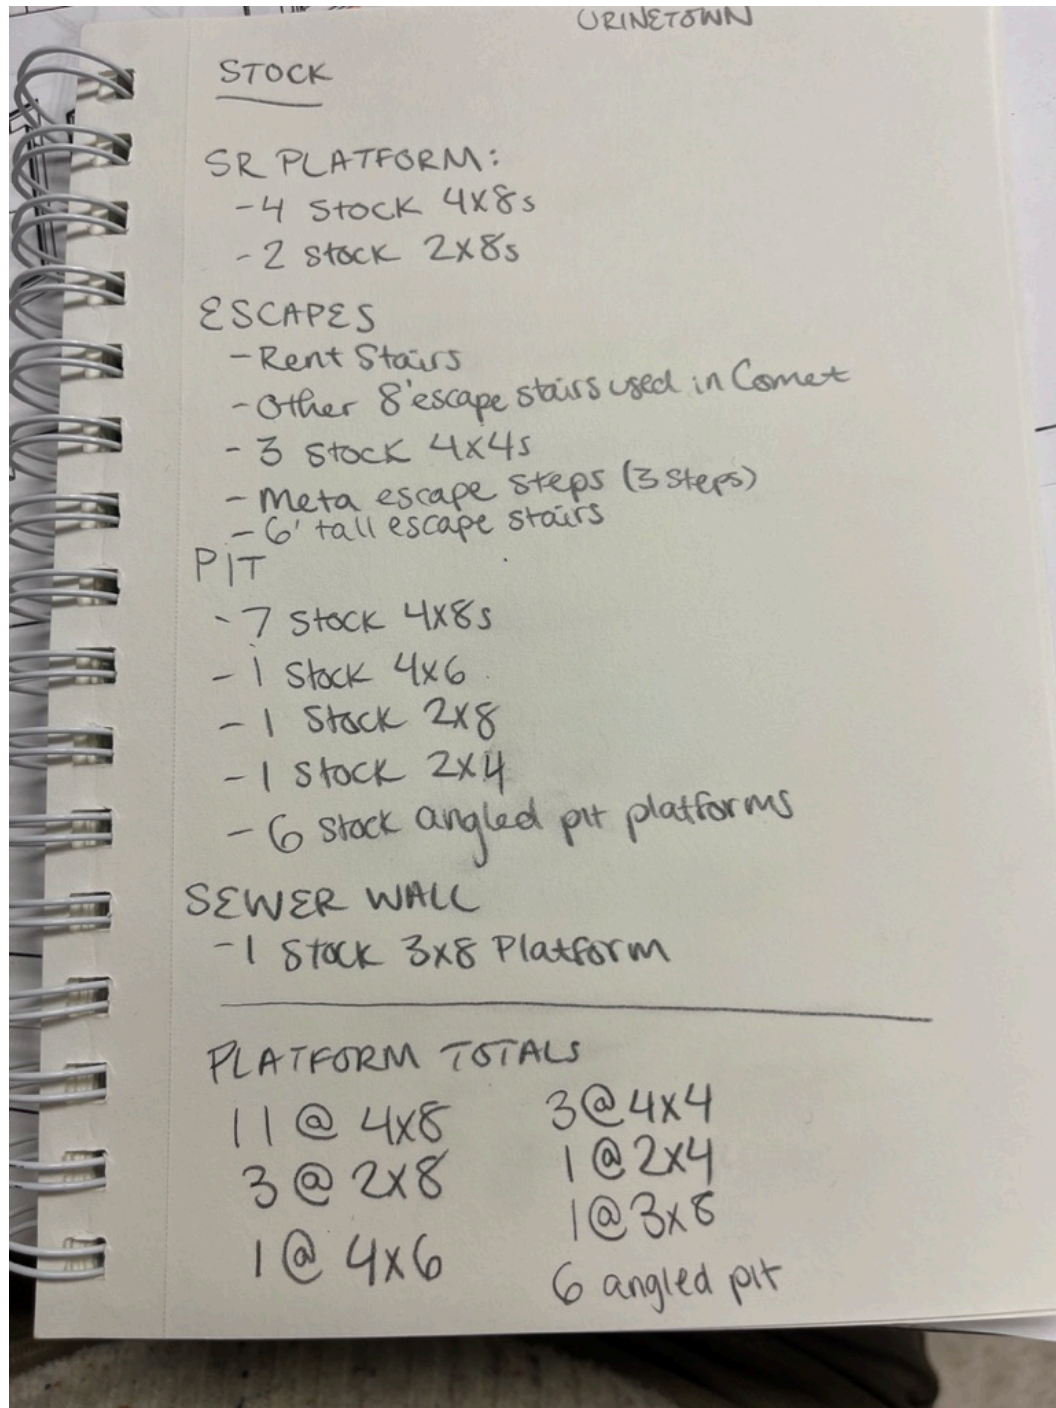 URINETOWN
STOCK
SR PLATFORM:
-4 Stock 4x8s
-2 stock 2x8s
ESCAPES
-Rent Stairs
-Other 8' escape stairs used in Comet
-3 Stock 4x4s
-Meta escape steps (3 steps)
-6' tall escape stairs
PIT
-7 Stock 4x8s
-1 Stock 4x6
-1 Stock 2x8
-1 Stock 2x4
-6 Stock angled pit platforms
SEWER WALL
-1 Stock 3x8 Platform
PLATFORM TOTALS
11 @ 4x8
3 @ 2x8
1 @ 4x6
3 @ 4x4
1 @ 2x4
1 @ 3x8
6 angled pit